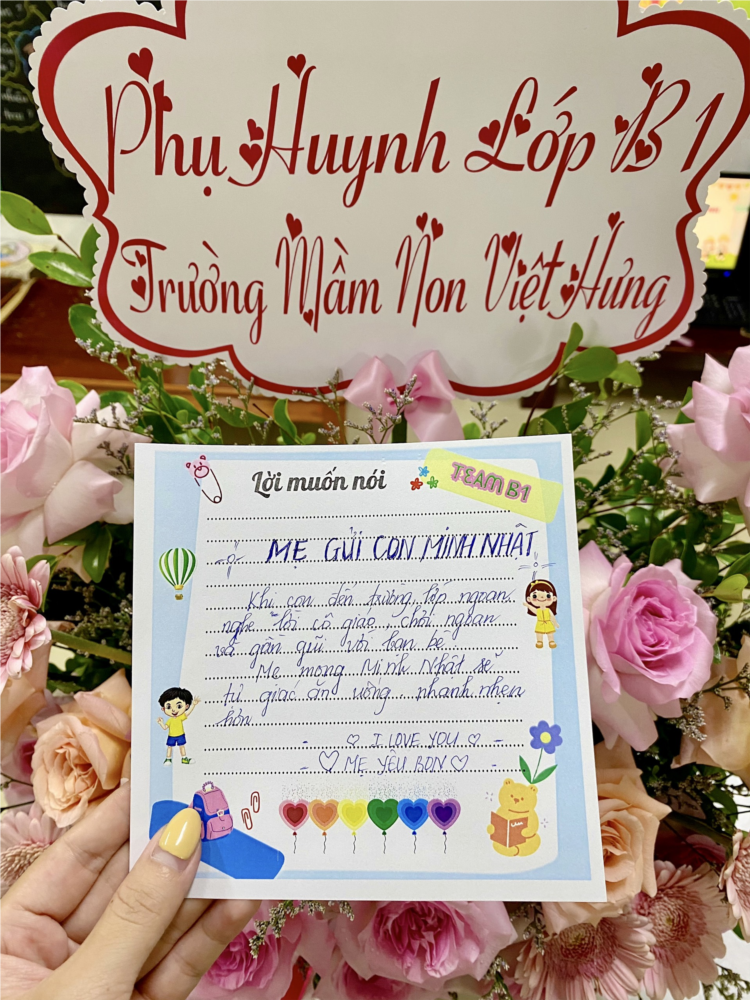 Phụ Huynh Lớp B1
Trường Mầm Non Việt Hưng
Lời muốn nói
TEAM B1
MẸ GỬI CON MINH NHẬT
Khi con đến trường, lớp ngoan
nghe lời cô giáo, chơi ngoan
và gần gũi với bạn bè
Mẹ mong Minh Nhật sẽ
tự giác ăn uống nhanh nhẹn
hơn
- ♡ I LOVE YOU ♡ -
- ♡ MẸ YÊU BON ♡ -